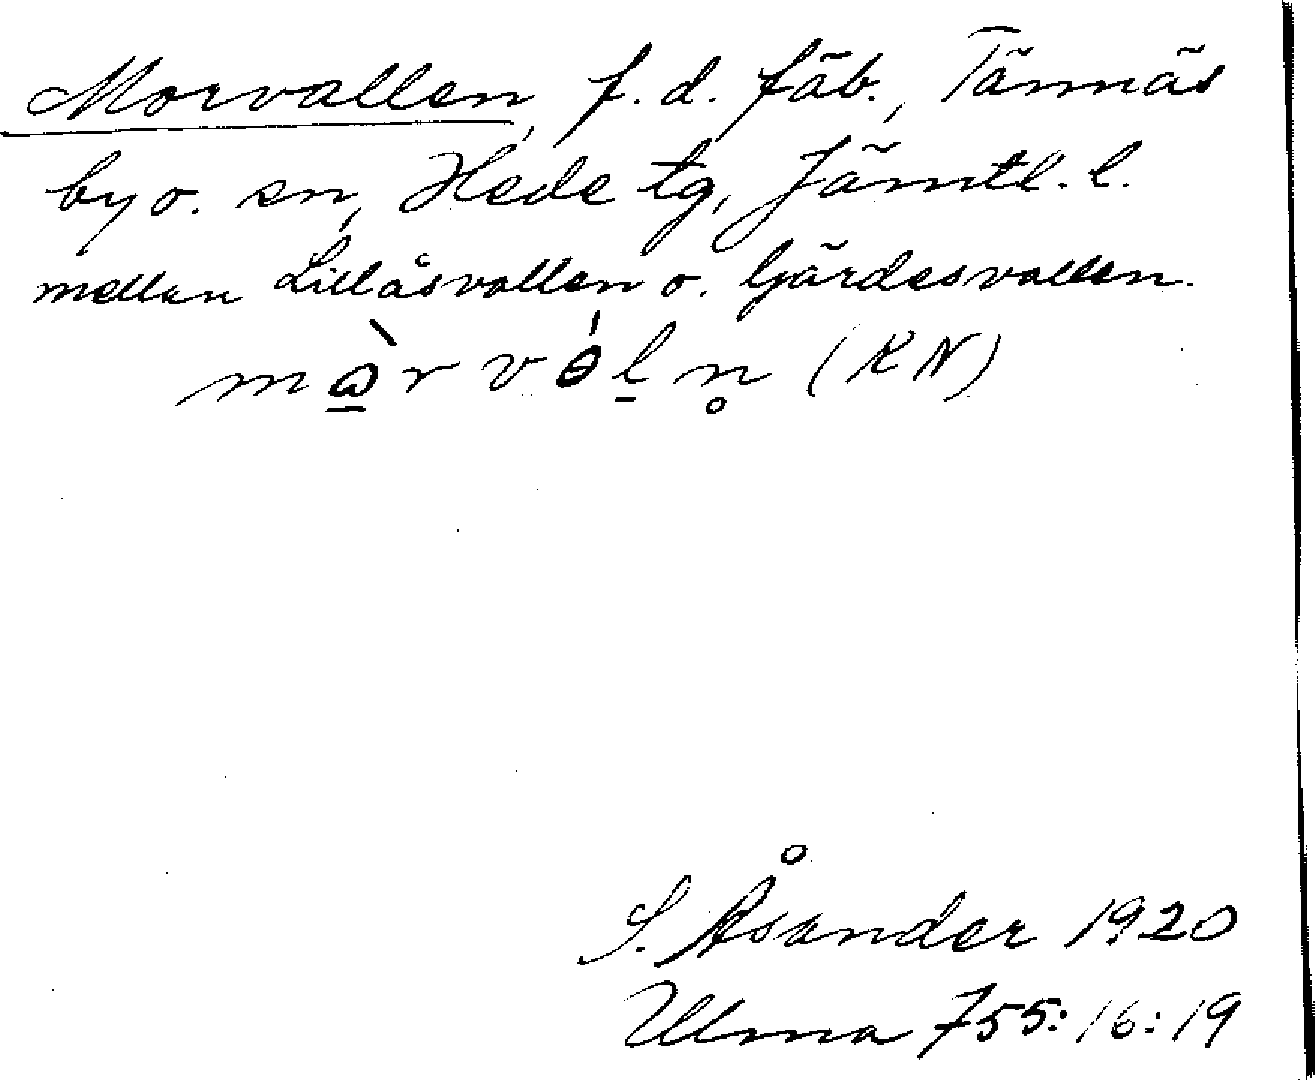 Morvallen, f.d. fäb., Tännäs
by o. sn, Hede tg, Jämtl. l.
mellan Lillåsvallen o. ljärdesvallen.
(KN)
S. Åsander 1920
Ulma 755:16:19